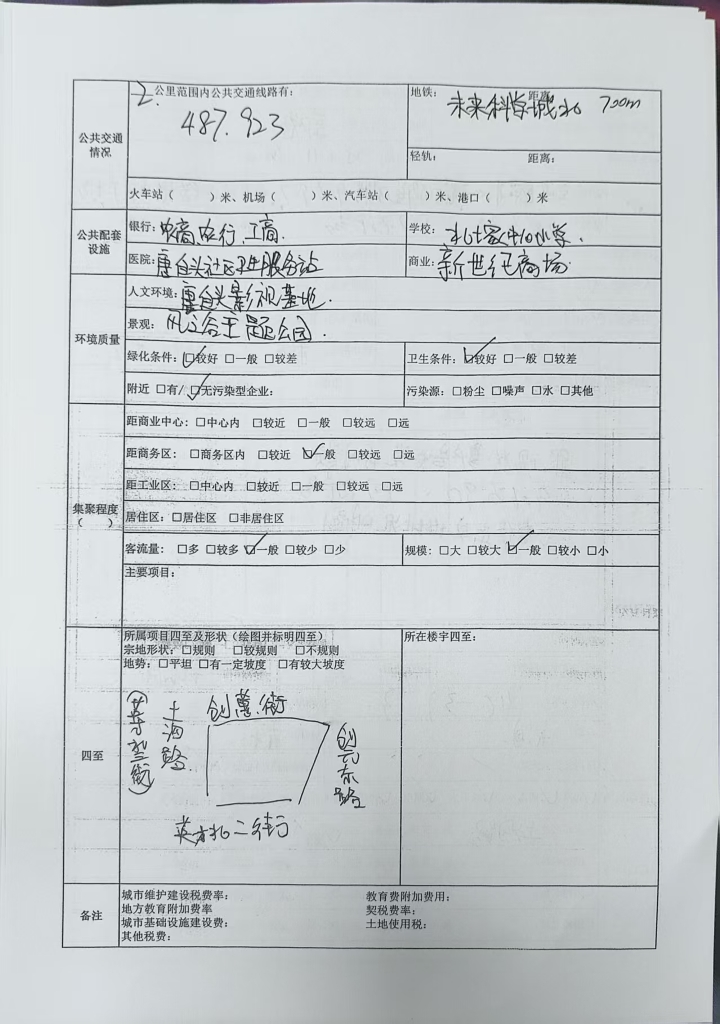 公共交通情况
2 公里范围内公共交通线路有:
487. 923
地铁: 未来科学城北 距离: 700m
轻轨: 距离:
火车站( )米、机场( )米、汽车站( )米、港口( )米
公共配套设施
银行: 农商、农行、工商.
学校: 北七家中心小学.
医院: 社区卫生服务站
商业: 新世纪商场.
环境质量
人文环境: 影视基地.
景观: 主题公园.
绿化条件: ☑较好 □一般 □较差
卫生条件: ☑较好 □一般 □较差
附近 □有/ ☑无污染型企业:
污染源: □粉尘 □噪声 □水 □其他
集聚程度( )
距商业中心: □中心内 □较近 □一般 □较远 □远
距商务区: □商务区内 □较近 ☑一般 □较远 □远
距工业区: □中心内 □较近 □一般 □较远 □远
居住区: □居住区 □非居住区
客流量: □多 □较多 ☑一般 □较少 □少
规模: □大 □较大 ☑一般 □较小 □小
主要项目:
四至
所属项目四至及形状(绘图并标明四至)
宗地形状: □规则 □较规则 □不规则
地势: □平坦 □有一定坡度 □有较大坡度
所在楼宇四至:
街
路
创 东路
英才北二街
备注
城市维护建设税费率:
教育费附加费用:
地方教育附加费率
契税费率:
城市基础设施建设费:
土地使用税:
其他税费: